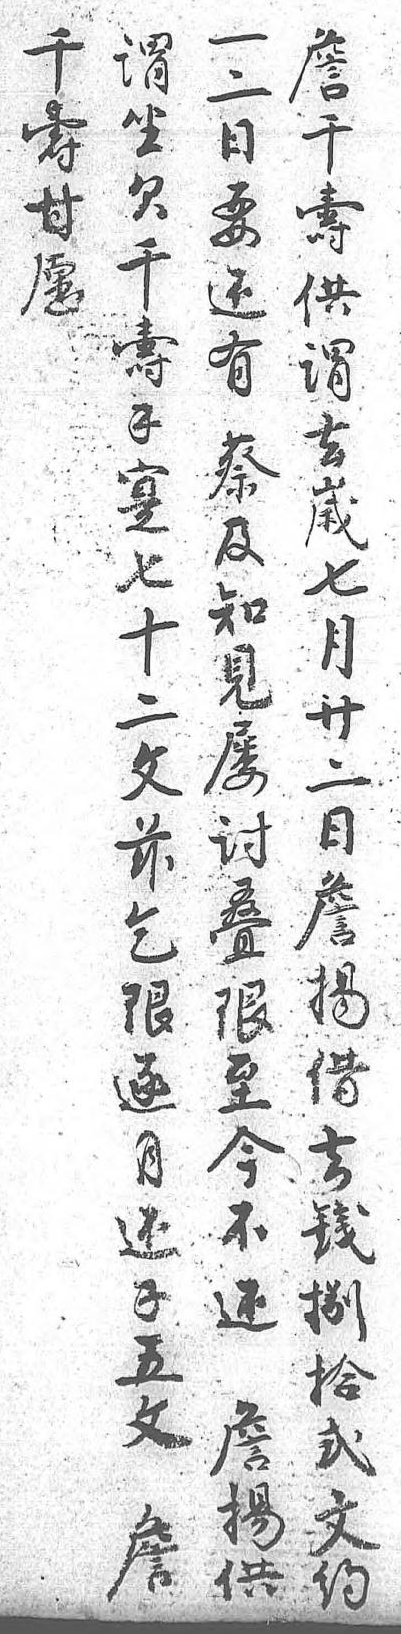 詹千壽供謂去歲七月廿二日詹揚借去錢捌拾弍文約
一二日要还有蔡及知見屡討叠限至今不还 詹揚供
謂坐欠千壽子寔七十二文茲乞限逐月还子五文 詹
千壽甘愿